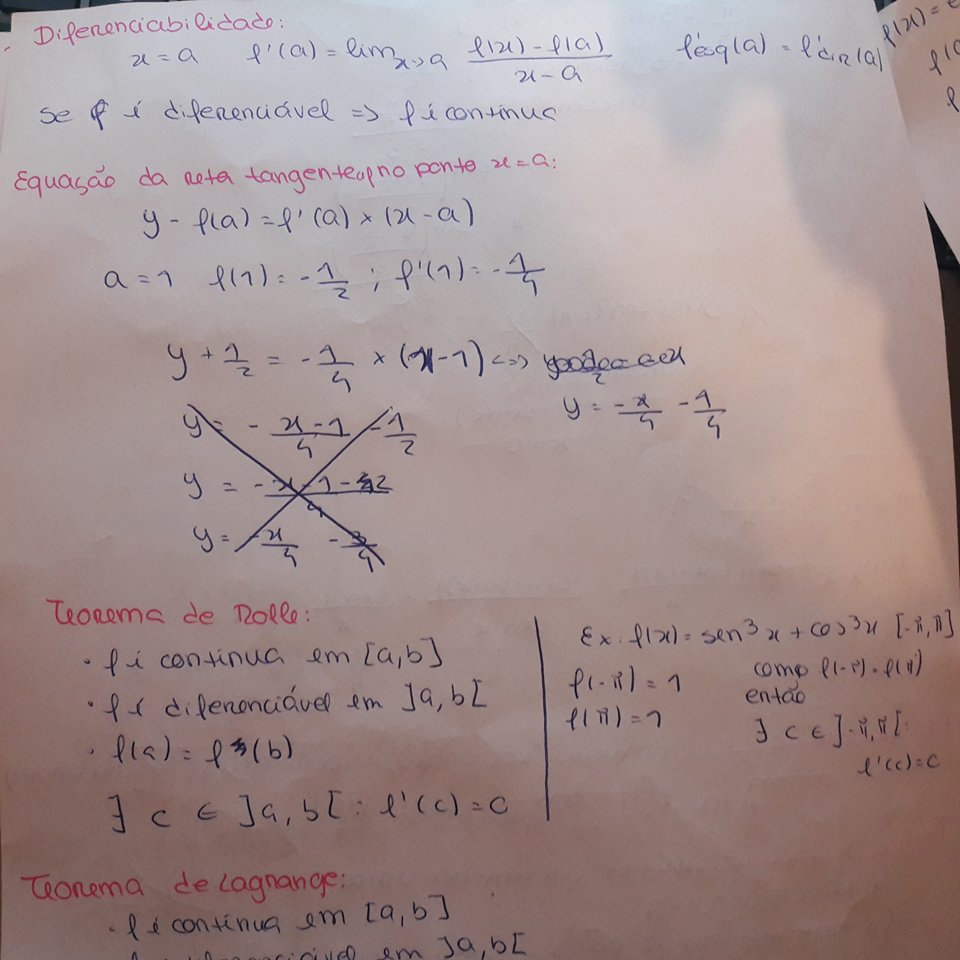 Diferenciabilidade:
x = a   f'(a) = lim x→a (f(x) - f(a))/(x - a)   f'esq(a) = f'dir(a)
Se f é diferenciável => f é contínua
Equação da reta tangente no ponto x = a:
y - f(a) = f'(a) × (x - a)
a = 1   f(1) = -1/2 ; f'(1) = -1/4
y + 1/2 = -1/4 × (x - 1) <=>
y = -x/4 - 1/4
y = - (x - 1)/4 - 1/2
y = - (x - 1 - 2)/4
y = -x/4 - 3/4
Teorema de Rolle:
· f é contínua em [a,b]
· f é diferenciável em ]a,b[
· f(a) = f(b)
∃ c ∈ ]a,b[ : f'(c) = c
Ex: f(x) = sen³x + cos³x [-π,π]
f(-π) = 1
f(π) = 1
como f(-π) = f(π)
então
∃ c ∈ ]-π,π[ :
f'(c) = c
Teorema de Lagrange:
· f é contínua em [a,b]
· f é diferenciável em ]a,b[
f(x) =